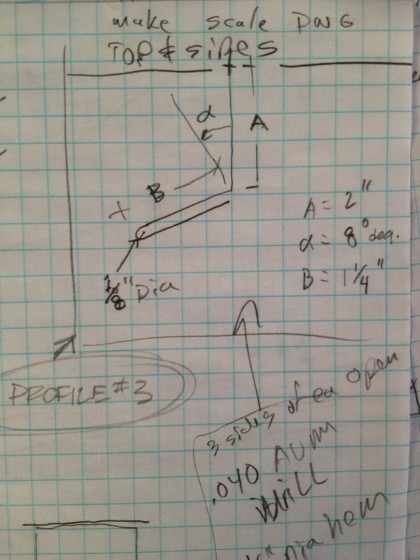 make scale DWG
TOP & sides
α
A
B
A = 2"
α = 8° deg.
B = 1 1/4"
1/8" Dia
PROFILE #3
3 sides of ea open
.040 Alum
Mill
hem